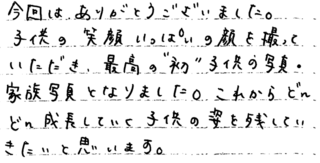 今回は、ありがとうございました。
子供の笑顔いっぱいの顔を撮って
いただき、最高の"初"子供の写真・
家族写真となりました。これからどん
どん成長していく子供の姿を残してい
きたいと思います。